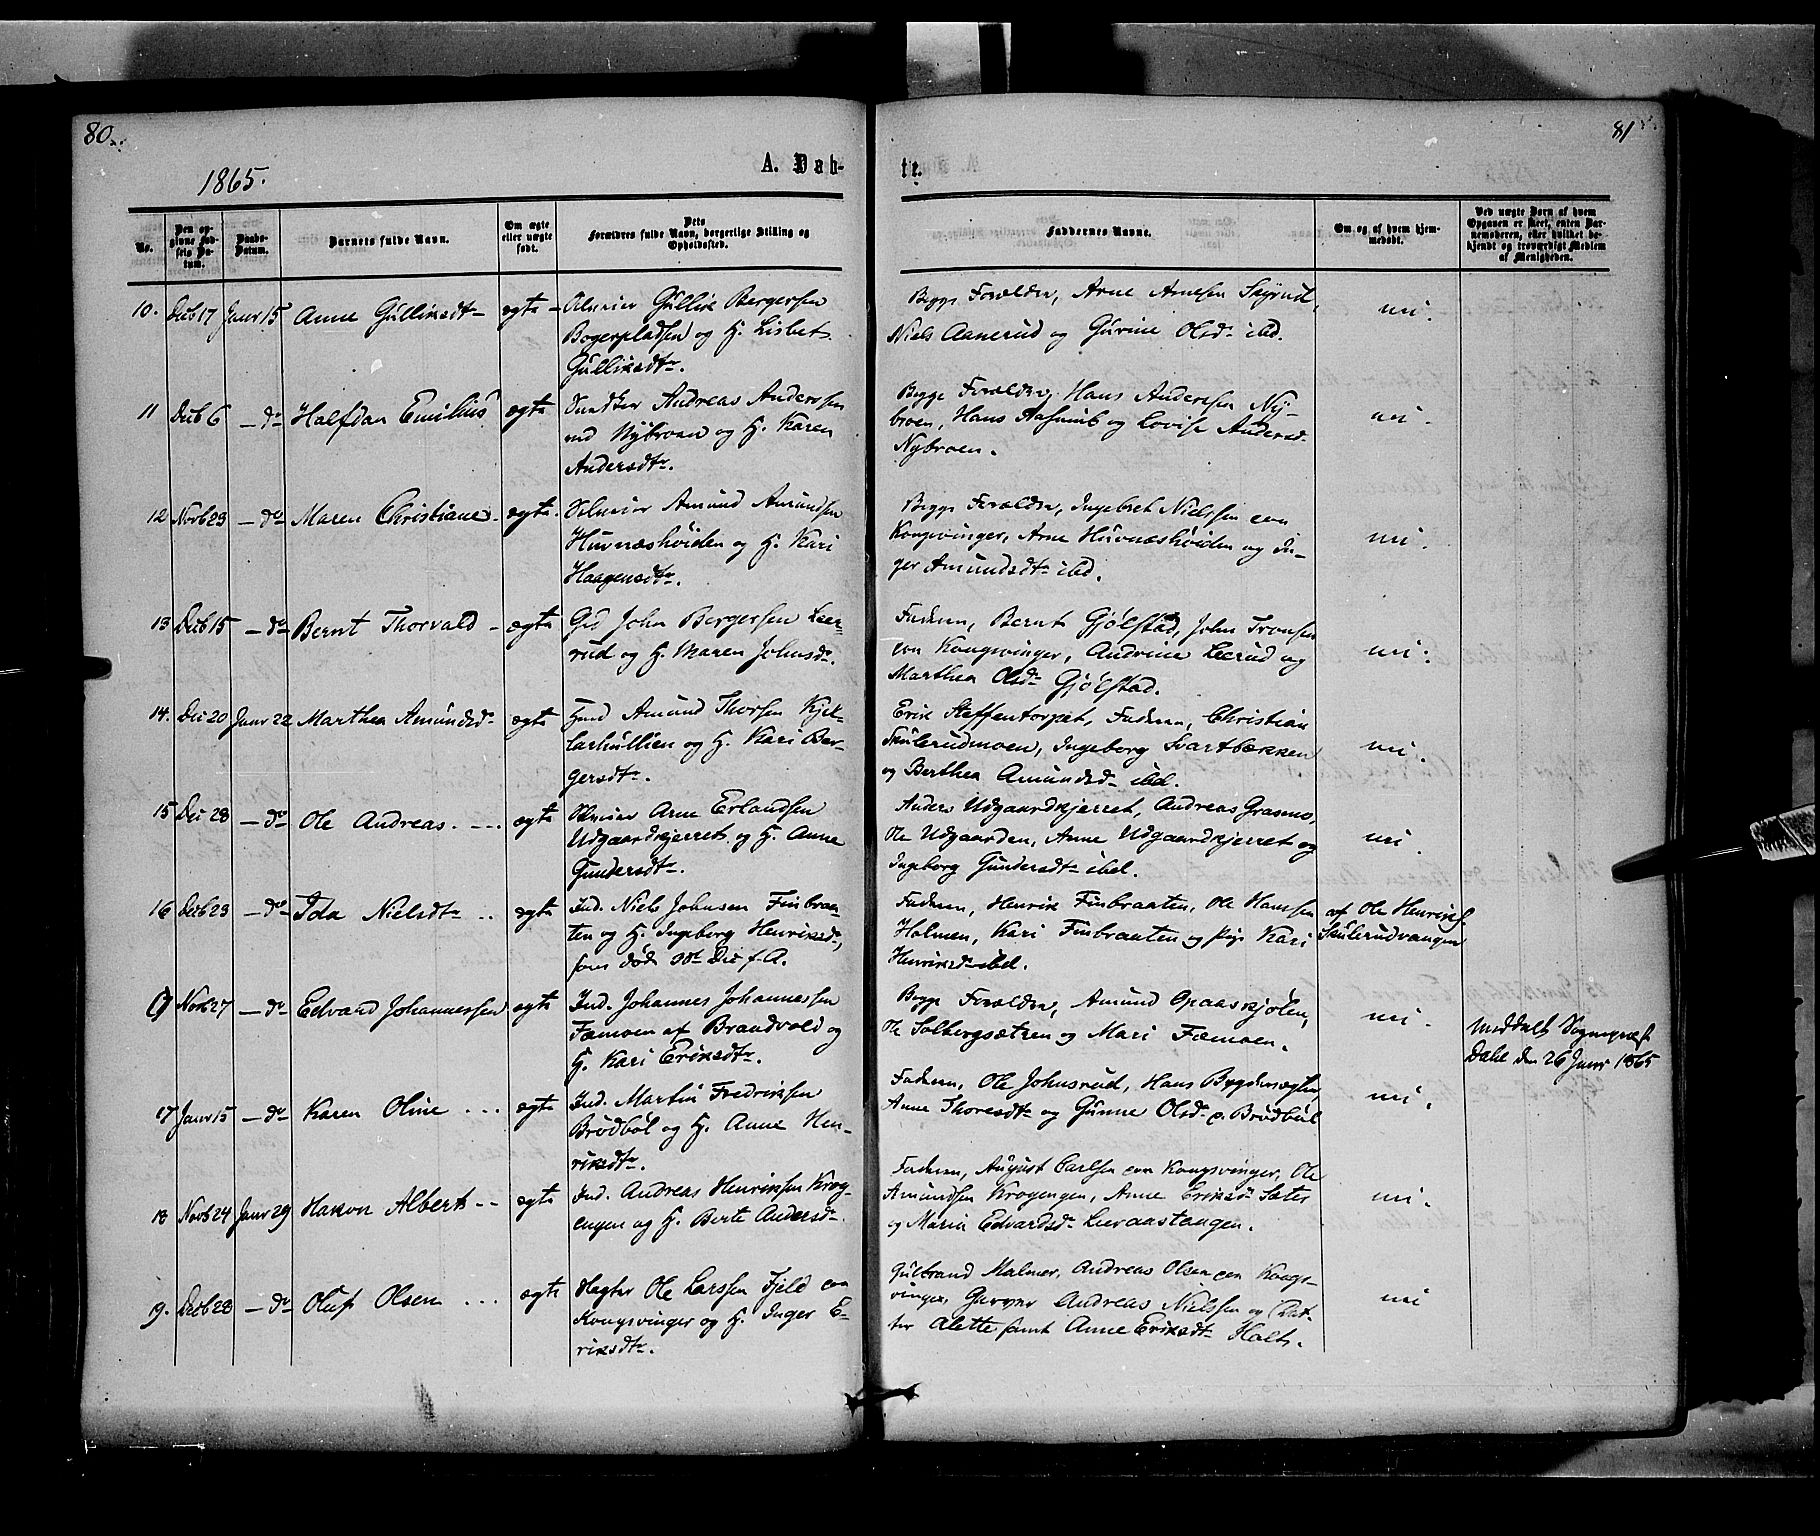 80.
81
1865.
A. Dåb-
te.
No.
Den opgivne Fødsels Datum.
Daabs-Datum.
Barnets fulde Navn.
Om ægte eller uægte født.
Forældres fulde Navn, borgerlige Stilling og Opholdssted.
Faddernes Navne.
Om og af hvem hjemmedøbt.
Ved uægte Børn af hvem Opgaven er skeet, enten Barnemoderen, eller hvilket bekjendt og troværdigt Medlem af Menigheden.
10. Decb 17 Januar 15 Anne Gulliksdtr ægte
Gullik Bergersen
Bogerpladsen og H. Lisbet
Gulliksdtr.
Begge Forældre, Arne Arnesen Skyrud,
Niels Aanerud og Gurine Olsdr ibd.
ni.
11 Decb 6 do Halfdan Emilius ægte
Andreas Anderssen
ved Nybroen og H. Karen
Andersdtr.
Begge Forældre, Hans Andersen Ny-
broen, Hans Aasumb og Lovise Andersdr
Nybroen.
ni.
12 Novb 23 do Maren Christiane ægte.
Selveier Amund Amundsen
Huvnæshøiden og H. Kari
Haagensdtr.
Begge Forældre, Ingebret Nielssen
Kongsvinger, Arne Huvnæshøiden og In-
ger Amundsdtr ibd.
ni.
13 Decb 15 do Bernt Thorvald ægte
Gd John Bergersen Leer-
rud og H. Maren Johnsdr.
Faderen, Bernt Gjølstad, John Tronsen
Kongsvinger, Andrine Leerud og
Marthea Olsdr Gjølstad.
ni.
14. Dec 20 Januar 22 Marthea Amundsdr ægte
Amund Thorsen Kjel-
larhullien og H. Kari Ber-
gersdtr.
Erik Steffentorpet, Faderen, Christian
Skulerudmoen, Ingeborg Svartbækken
og Berthea Amundsdr ibd.
ni.
15 Dec 28 do Ole Andreas ægte
Selveier Arne Erlandsen
Udgaardkjerret og H. Anne
Gundersdtr.
Anders Udgaardkjerret, Andreas Grasmo,
Ole Udgaarden, Anne Udgaardkjerret og
Ingeborg Gundersdtr ibd.
ni
16 Decb 23 do Ida Nielsdtr ægte
Ind. Niels Johnsen Finbraa-
ten og H. Ingeborg Henriksdr,
som døde Dec f. A.
Faderen, Henrik Finbraaten, Ole Hanssen
Holmen, Kari Finbraaten og Pige Kari
Henriksdr ibd.
af Ole Henriks.
Skulerudvangen
Novb 27 do Edvard Johannessen ægte
Ind. Johannes Johannessen
Fæmoen af Brandvold og
H. Kari Eriksdtr.
Begge Forældre, Amund Opaaskjølen,
Ole Solbergsætren og Mari Fæmoen.
ni.
Meddelt Sognepræst
Dahl den 26 Januar 1865
17 Januar 15 do Karen Oline ægte
Ind. Martin Fredriksen
Brødbøl og H. Anne Hen-
riksdtr.
Faderen, Ole Johnsrud, Hans Bygdersæter,
Anne Thoresdtr og Gunne Olsdr p. Brødbøl
ni.
18 Novb 24 Januar 29 Hakon Albert ægte
Ind. Andreas Henriksen Krog-
engen og H. Berte Andersdr.
Faderen, August Carlsen Kongsvinger, Ole
Amundsen Krogengen, Anne Eriksdr Sæter
og Maria Edvardsdr Lieraastangen.
ni.
19. Decb 28 do Oluf Olsen ægte
Ole Larssen Fjeld
Kongsvinger og H. Inger E-
riksdtr.
Gulbrand Malmer, Andreas Olsen Kongs-
vinger, Andreas Nielssen og Dat-
ter Alette samt Anne Eriksdtr Holt.
ni